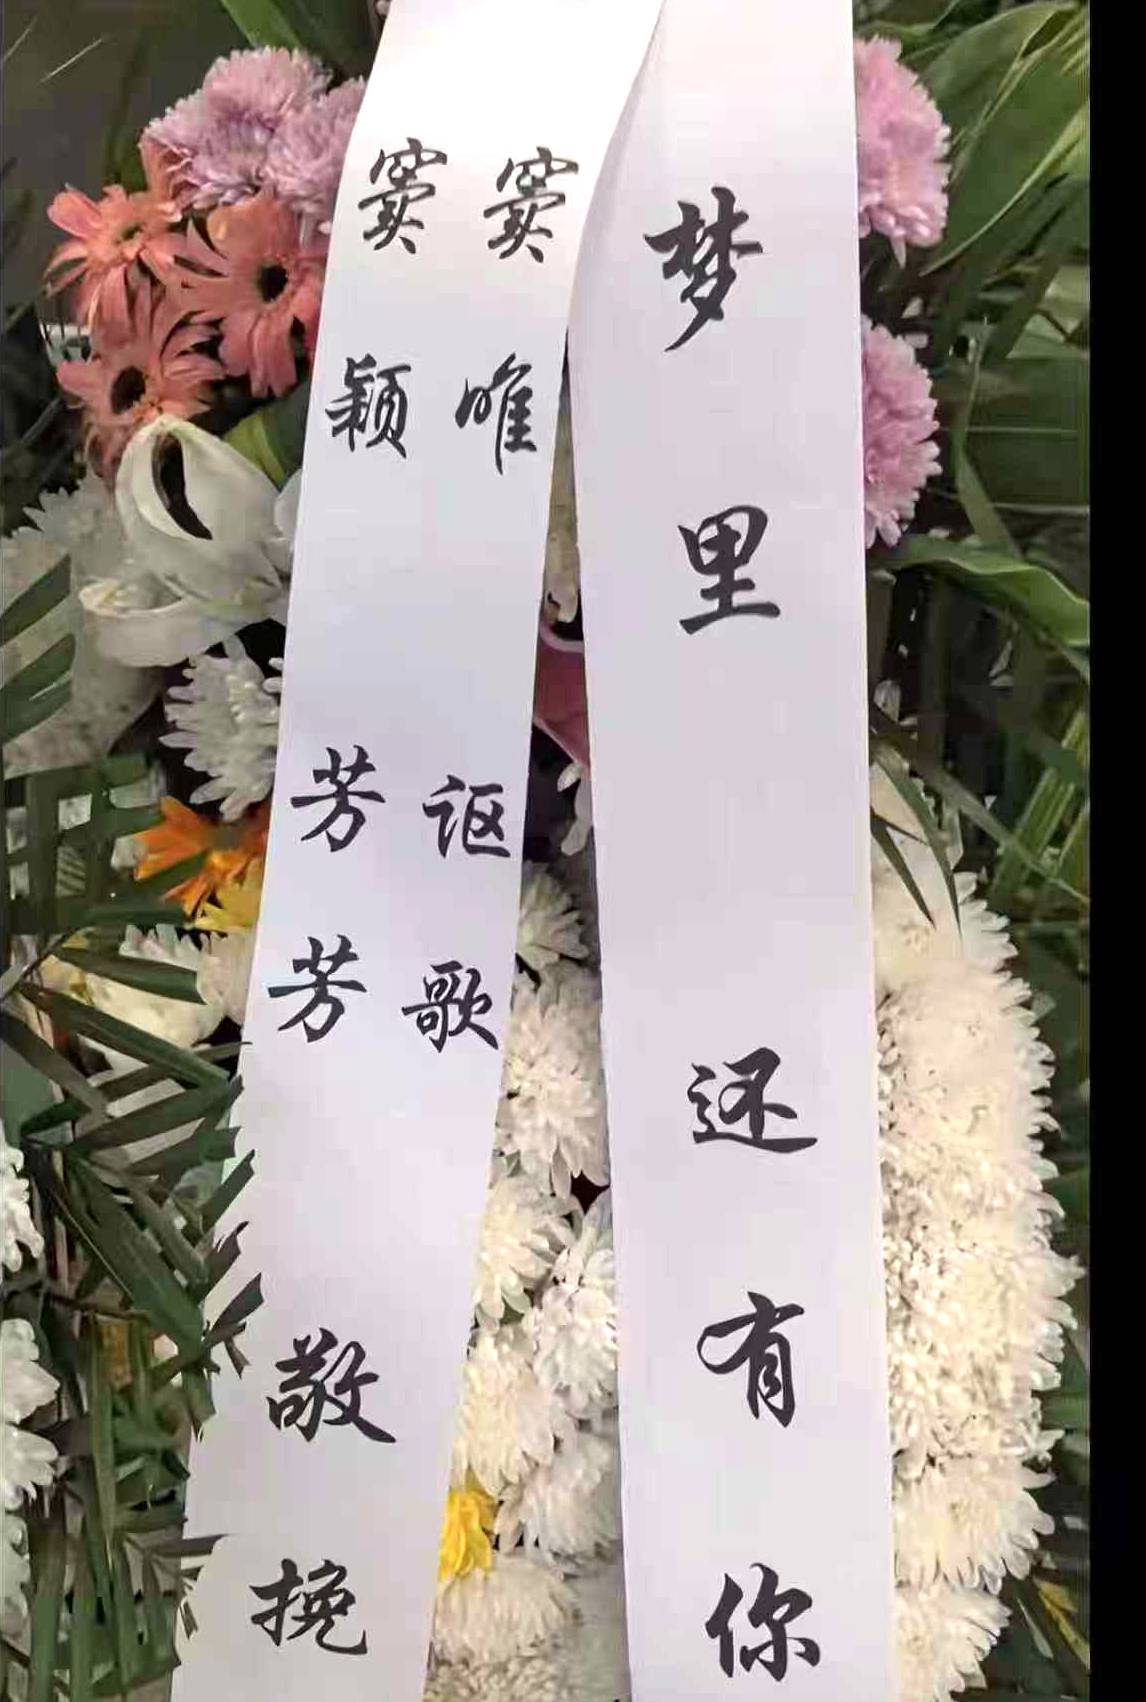 梦里还有你
窦唯 讴歌
窦颖 芳芳
敬挽